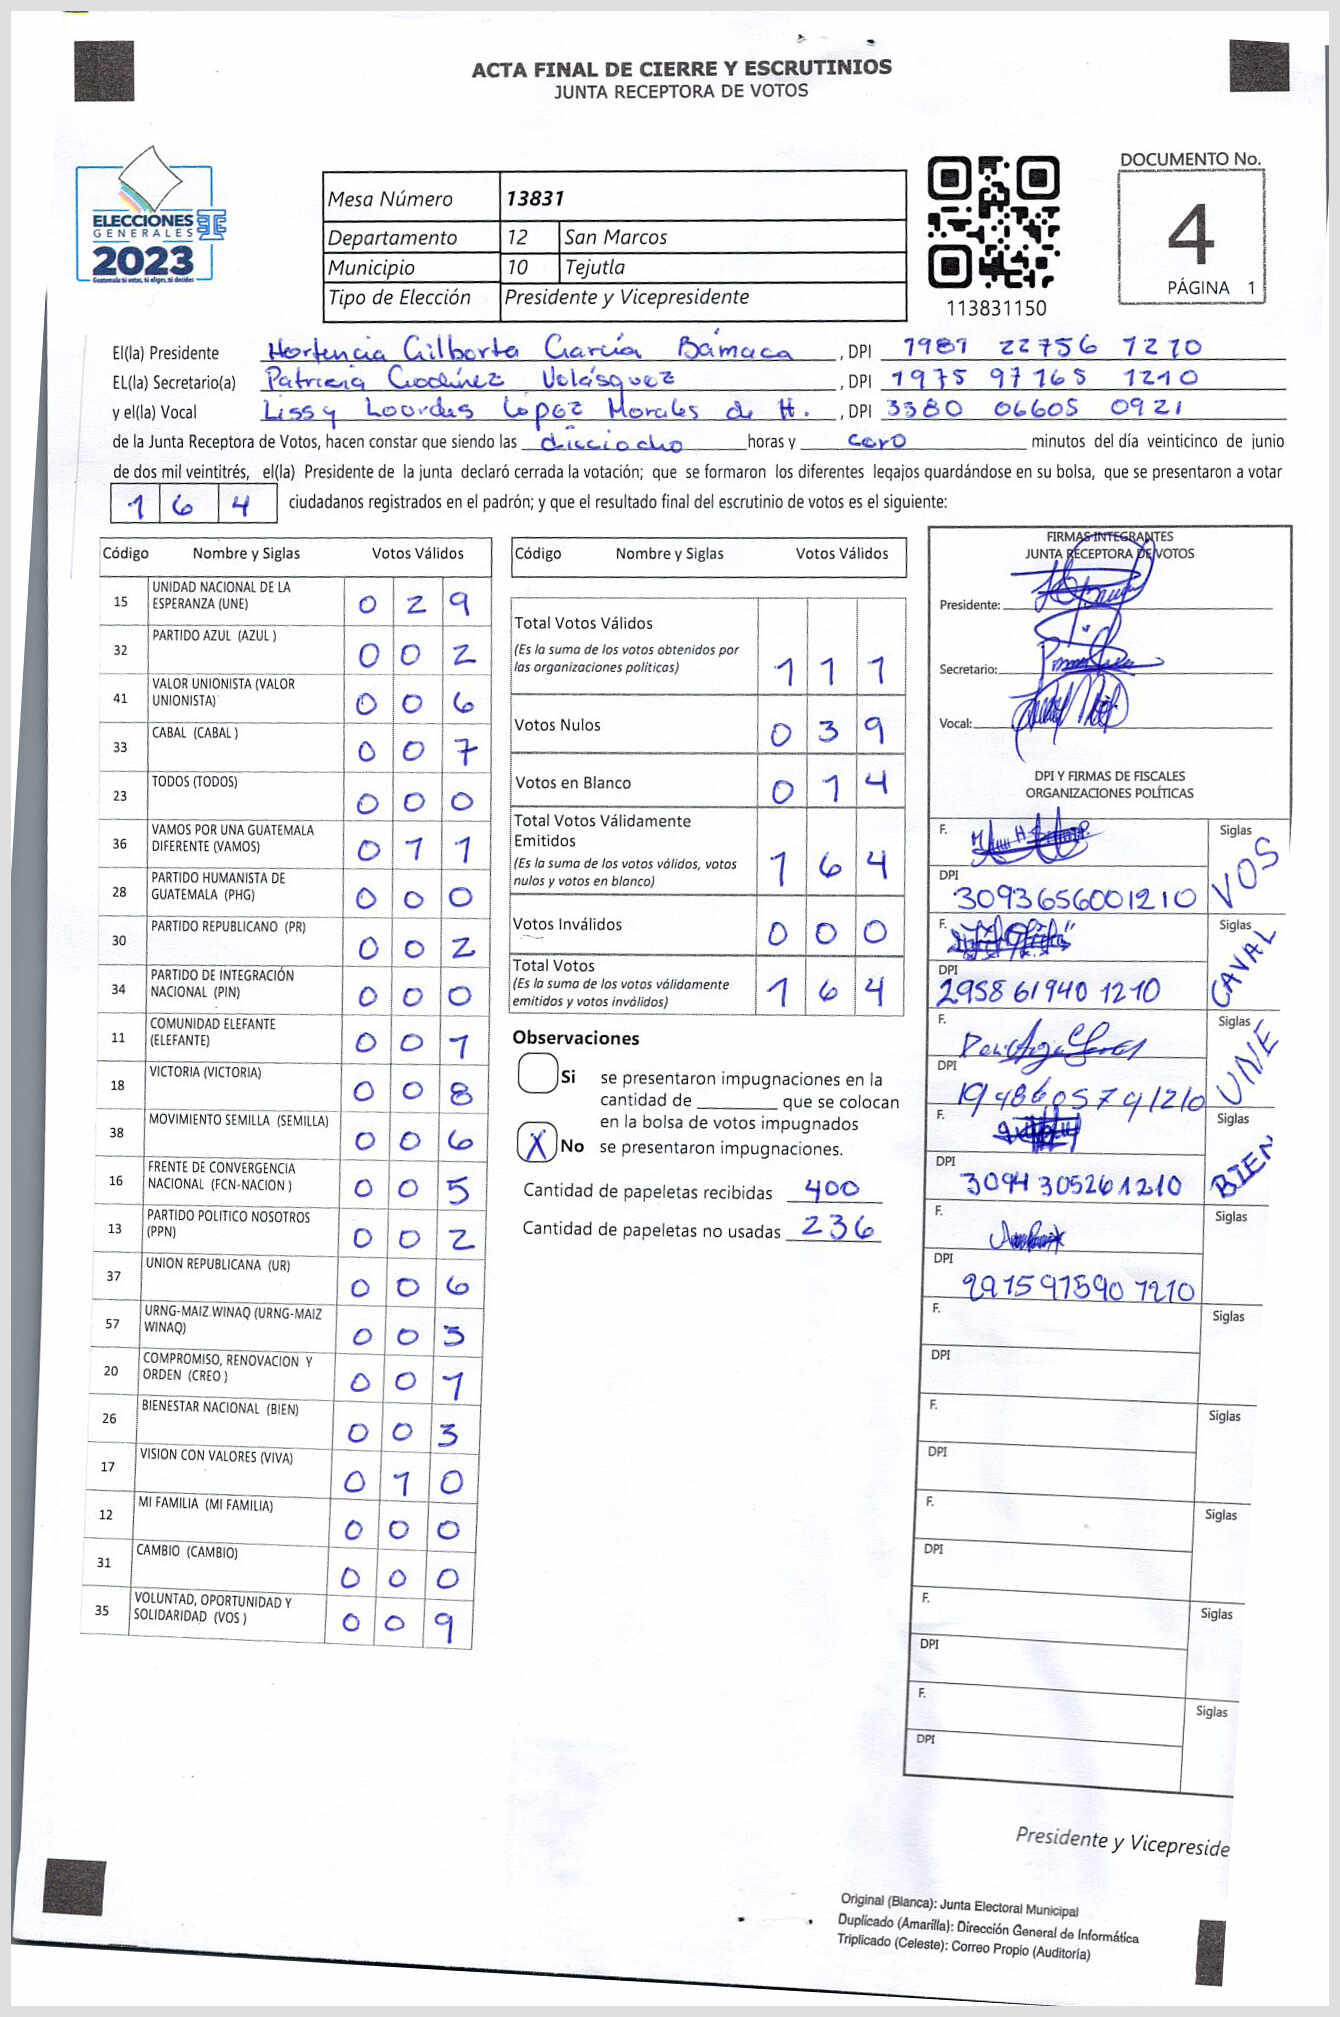 ACTA FINAL DE CIERRE Y ESCRUTINIOS
JUNTA RECEPTORA DE VOTOS
ELECCIONES
GENERALES
2023
Guatemala tú votas, tú eliges, tú decides
Mesa Número 13831
Departamento 12 San Marcos
Municipio 10 Tejutla
Tipo de Elección Presidente y Vicepresidente
113831150
DOCUMENTO No.
4
PÁGINA 1
El(la) Presidente Hortencia Gilberta García Bámaca, DPI 1981 22756 1210
EL(la) Secretario(a) Patricia Godínez Velásquez, DPI 1975 97165 1210
y el(la) Vocal Lissy Lourdes López Morales de H., DPI 3380 06605 0921
de la Junta Receptora de Votos, hacen constar que siendo las dieciocho horas y cero minutos del día veinticinco de junio
de dos mil veintitrés, el(la) Presidente de la junta declaró cerrada la votación; que se formaron los diferentes legajos guardándose en su bolsa, que se presentaron a votar
1 6 4 ciudadanos registrados en el padrón; y que el resultado final del escrutinio de votos es el siguiente:
Código Nombre y Siglas Votos Válidos
15 UNIDAD NACIONAL DE LA ESPERANZA (UNE) 0 2 9
32 PARTIDO AZUL (AZUL ) 0 0 2
41 VALOR UNIONISTA (VALOR UNIONISTA) 0 0 6
33 CABAL (CABAL ) 0 0 7
23 TODOS (TODOS) 0 0 0
36 VAMOS POR UNA GUATEMALA DIFERENTE (VAMOS) 0 1 1
28 PARTIDO HUMANISTA DE GUATEMALA (PHG) 0 0 0
30 PARTIDO REPUBLICANO (PR) 0 0 2
34 PARTIDO DE INTEGRACIÓN NACIONAL (PIN) 0 0 0
11 COMUNIDAD ELEFANTE (ELEFANTE) 0 0 1
18 VICTORIA (VICTORIA) 0 0 8
38 MOVIMIENTO SEMILLA (SEMILLA) 0 0 6
16 FRENTE DE CONVERGENCIA NACIONAL (FCN-NACION ) 0 0 5
13 PARTIDO POLITICO NOSOTROS (PPN) 0 0 2
37 UNION REPUBLICANA (UR) 0 0 6
57 URNG-MAIZ WINAQ (URNG-MAIZ WINAQ) 0 0 3
20 COMPROMISO, RENOVACION Y ORDEN (CREO ) 0 0 1
26 BIENESTAR NACIONAL (BIEN) 0 0 3
17 VISION CON VALORES (VIVA) 0 1 0
12 MI FAMILIA (MI FAMILIA) 0 0 0
31 CAMBIO (CAMBIO) 0 0 0
35 VOLUNTAD, OPORTUNIDAD Y SOLIDARIDAD (VOS ) 0 0 9
Código Nombre y Siglas Votos Válidos
Total Votos Válidos
(Es la suma de los votos obtenidos por
las organizaciones políticas) 1 1 1
Votos Nulos 0 3 9
Votos en Blanco 0 1 4
Total Votos Válidamente
Emitidos
(Es la suma de los votos válidos, votos
nulos y votos en blanco) 1 6 4
Votos Inválidos 0 0 0
Total Votos
(Es la suma de los votos válidamente
emitidos y votos inválidos) 1 6 4
Observaciones
Si se presentaron impugnaciones en la
cantidad de ________ que se colocan
en la bolsa de votos impugnados
X No se presentaron impugnaciones.
Cantidad de papeletas recibidas 400
Cantidad de papeletas no usadas 236
FIRMAS INTEGRANTES
JUNTA RECEPTORA DE VOTOS
Presidente:
Secretario:
Vocal:
DPI Y FIRMAS DE FISCALES
ORGANIZACIONES POLÍTICAS
F. Siglas VOS
DPI 3093656001210
F. Siglas CAVAL
DPI 2958 61940 1210
F. Siglas UNE
DPI 1948605791210
F. Siglas BIEN
DPI 3094 30526 1210
F. Siglas
DPI 2915975901210
F. Siglas
DPI
F. Siglas
DPI
F. Siglas
DPI
F. Siglas
DPI
F. Siglas
DPI
Presidente y Vicepreside
Original (Blanca): Junta Electoral Municipal
Duplicado (Amarilla): Dirección General de Informática
Triplicado (Celeste): Correo Propio (Auditoría)